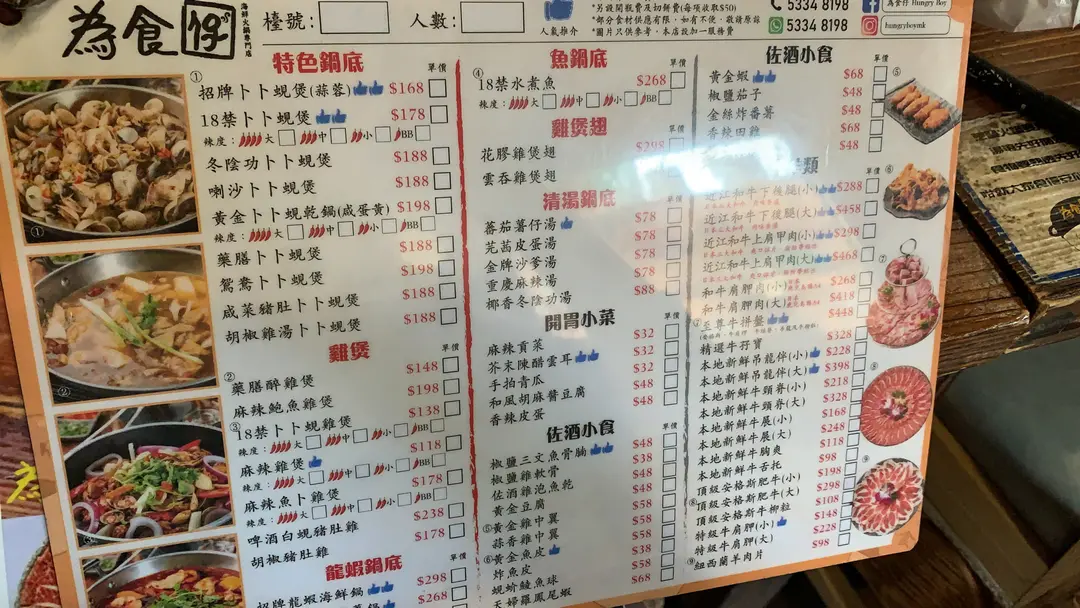 為食仔
海鮮火鍋專門店
檯號：
人數：
人氣推介
*另設開瓶費及切餅費(每項收取$50)
*部分食材供應有限，如有不便，敬請原諒
*圖片只供參考，本店設加一服務費
5334 8198
5334 8198
為食仔 Hungry Boy
hungryboymk
特色鍋底
單價
①
招牌卜卜蜆煲(蒜蓉) $168
18禁卜卜蜆煲 $178
辣度： 大 中 小 BB
冬陰功卜卜蜆煲 $188
喇沙卜卜蜆煲 $188
黃金卜卜蜆乾鍋(咸蛋黃) $198
辣度： 大 中 小 BB
藥膳卜卜蜆煲 $188
鴛鴦卜卜蜆煲 $198
咸菜豬肚卜卜蜆煲 $188
胡椒雞湯卜卜蜆煲 $188
雞煲
單價
②
藥膳醉雞煲 $148
麻辣鮑魚雞煲 $198
③18禁卜蜆雞煲 $138
辣度： 大 中 小 BB
麻辣雞煲 $118
辣度： 大 中 小 BB
麻辣魚卜雞煲 $178
辣度： 大 中 小 BB
啤酒白蜆豬肚雞 $238
胡椒豬肚雞 $178
龍蝦鍋底
單價
招牌龍蝦海鮮鍋 $298
$268
魚鍋底
單價
④
18禁水煮魚 $268
辣度： 大 中 小 BB
雞煲翅
單價
花膠雞煲翅 $298
雲吞雞煲翅
清湯鍋底
單價
蕃茄薯仔湯 $78
芫茜皮蛋湯 $78
金牌沙爹湯 $78
重慶麻辣湯 $78
椰香冬陰功湯 $88
開胃小菜
單價
麻辣貢菜 $32
芥末陳醋雲耳 $32
手拍青瓜 $32
和風胡麻醬豆腐 $48
香辣皮蛋 $48
佐酒小食
單價
椒鹽三文魚骨腩 $48
椒鹽雞軟骨 $38
佐酒雞泡魚乾 $48
黃金豆腐 $48
⑤黃金雞中翼 $58
蒜香雞中翼 $58
⑥黃金魚皮 $38
炸魚皮 $58
蜆蚧鯪魚球 $68
天婦羅鳳尾蝦
佐酒小食
單價
黃金蝦 $68
椒鹽茄子 $48
金絲炸番薯 $48
香辣田雞 $68
$48
類
單價
近江和牛下後腿(小) $288
近江和牛下後腿(大) $458
近江和牛上肩甲肉(小) $298
近江和牛上肩甲肉(大) $468
和牛肩胛肉(小) $268
和牛肩胛肉(大) $418
⑦至尊牛拼盤 $448
精選牛孖寶 $328
本地新鮮吊龍伴(小) $228
本地新鮮吊龍伴(大) $398
本地新鮮牛頸脊(小) $218
本地新鮮牛頸脊(大) $328
本地新鮮牛展(小) $168
本地新鮮牛展(大) $248
本地新鮮牛胸爽 $118
本地新鮮牛舌托 $98
頂級安格斯肥牛(小) $198
⑧頂級安格斯肥牛(大) $298
頂級安格斯牛柳粒 $108
特級牛肩胛(小) $148
特級牛肩胛(大) $228
⑨紐西蘭羊肉片 $98
①
②
③
⑤
⑥
⑦
⑧
⑨